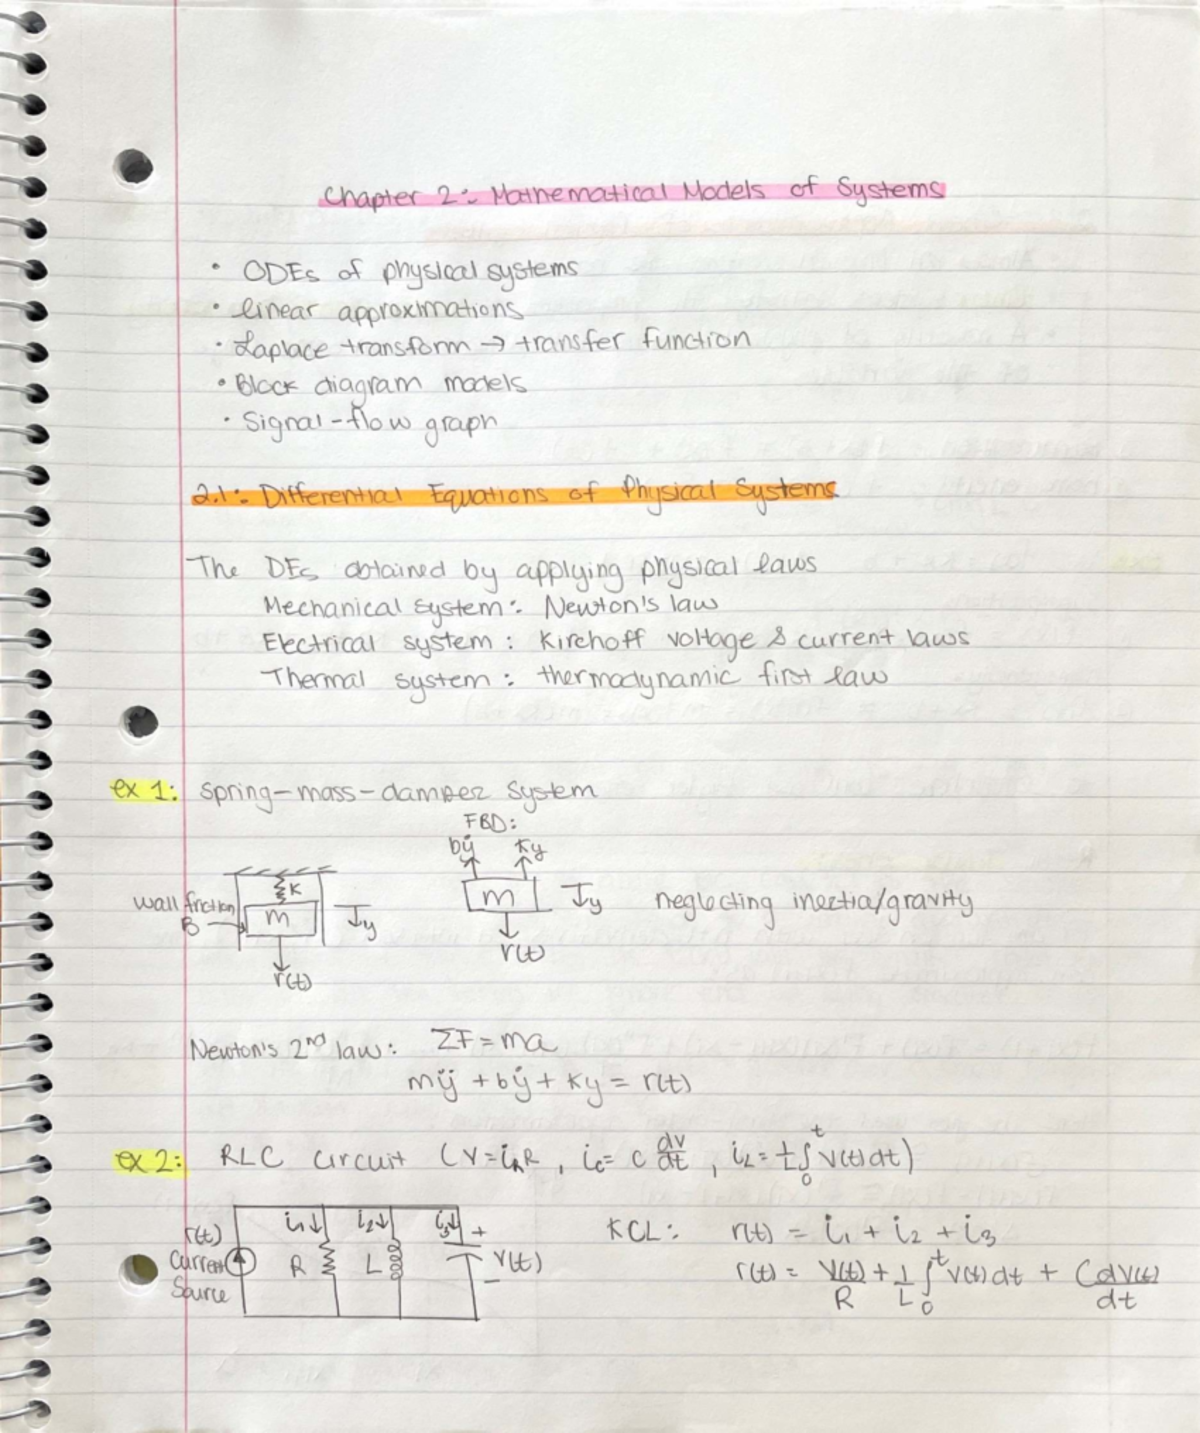 Chapter 2: Mathematical Models of Systems
• ODEs of physical systems
• linear approximations
• Laplace transform → transfer function
• Block diagram models
• Signal-flow graph
2.1: Differential Equations of Physical Systems
The DEs obtained by applying physical laws
Mechanical system: Newton's law
Electrical system: Kirchoff voltage & current laws
Thermal system: thermodynamic first law
ex 1: spring-mass-damper system
FBD:
bẏ ky
K
wall friction
B
m
y
r(t)
m
y
r(t)
neglecting inertia/gravity
Newton's 2nd law: ΣF = ma
mÿ + bẏ + ky = r(t)
ex 2: RLC circuit (V=i_R R, i_c = C dv/dt, i_L = 1/L ∫₀ᵗ v(t)dt)
r(t)
Current
Source
i₁↓ i₂↓ i₃↓ +
R L V(t)
−
KCL: r(t) = i₁ + i₂ + i₃
r(t) = V(t)/R + 1/L ∫₀ᵗ V(t)dt + C dV(t)/dt